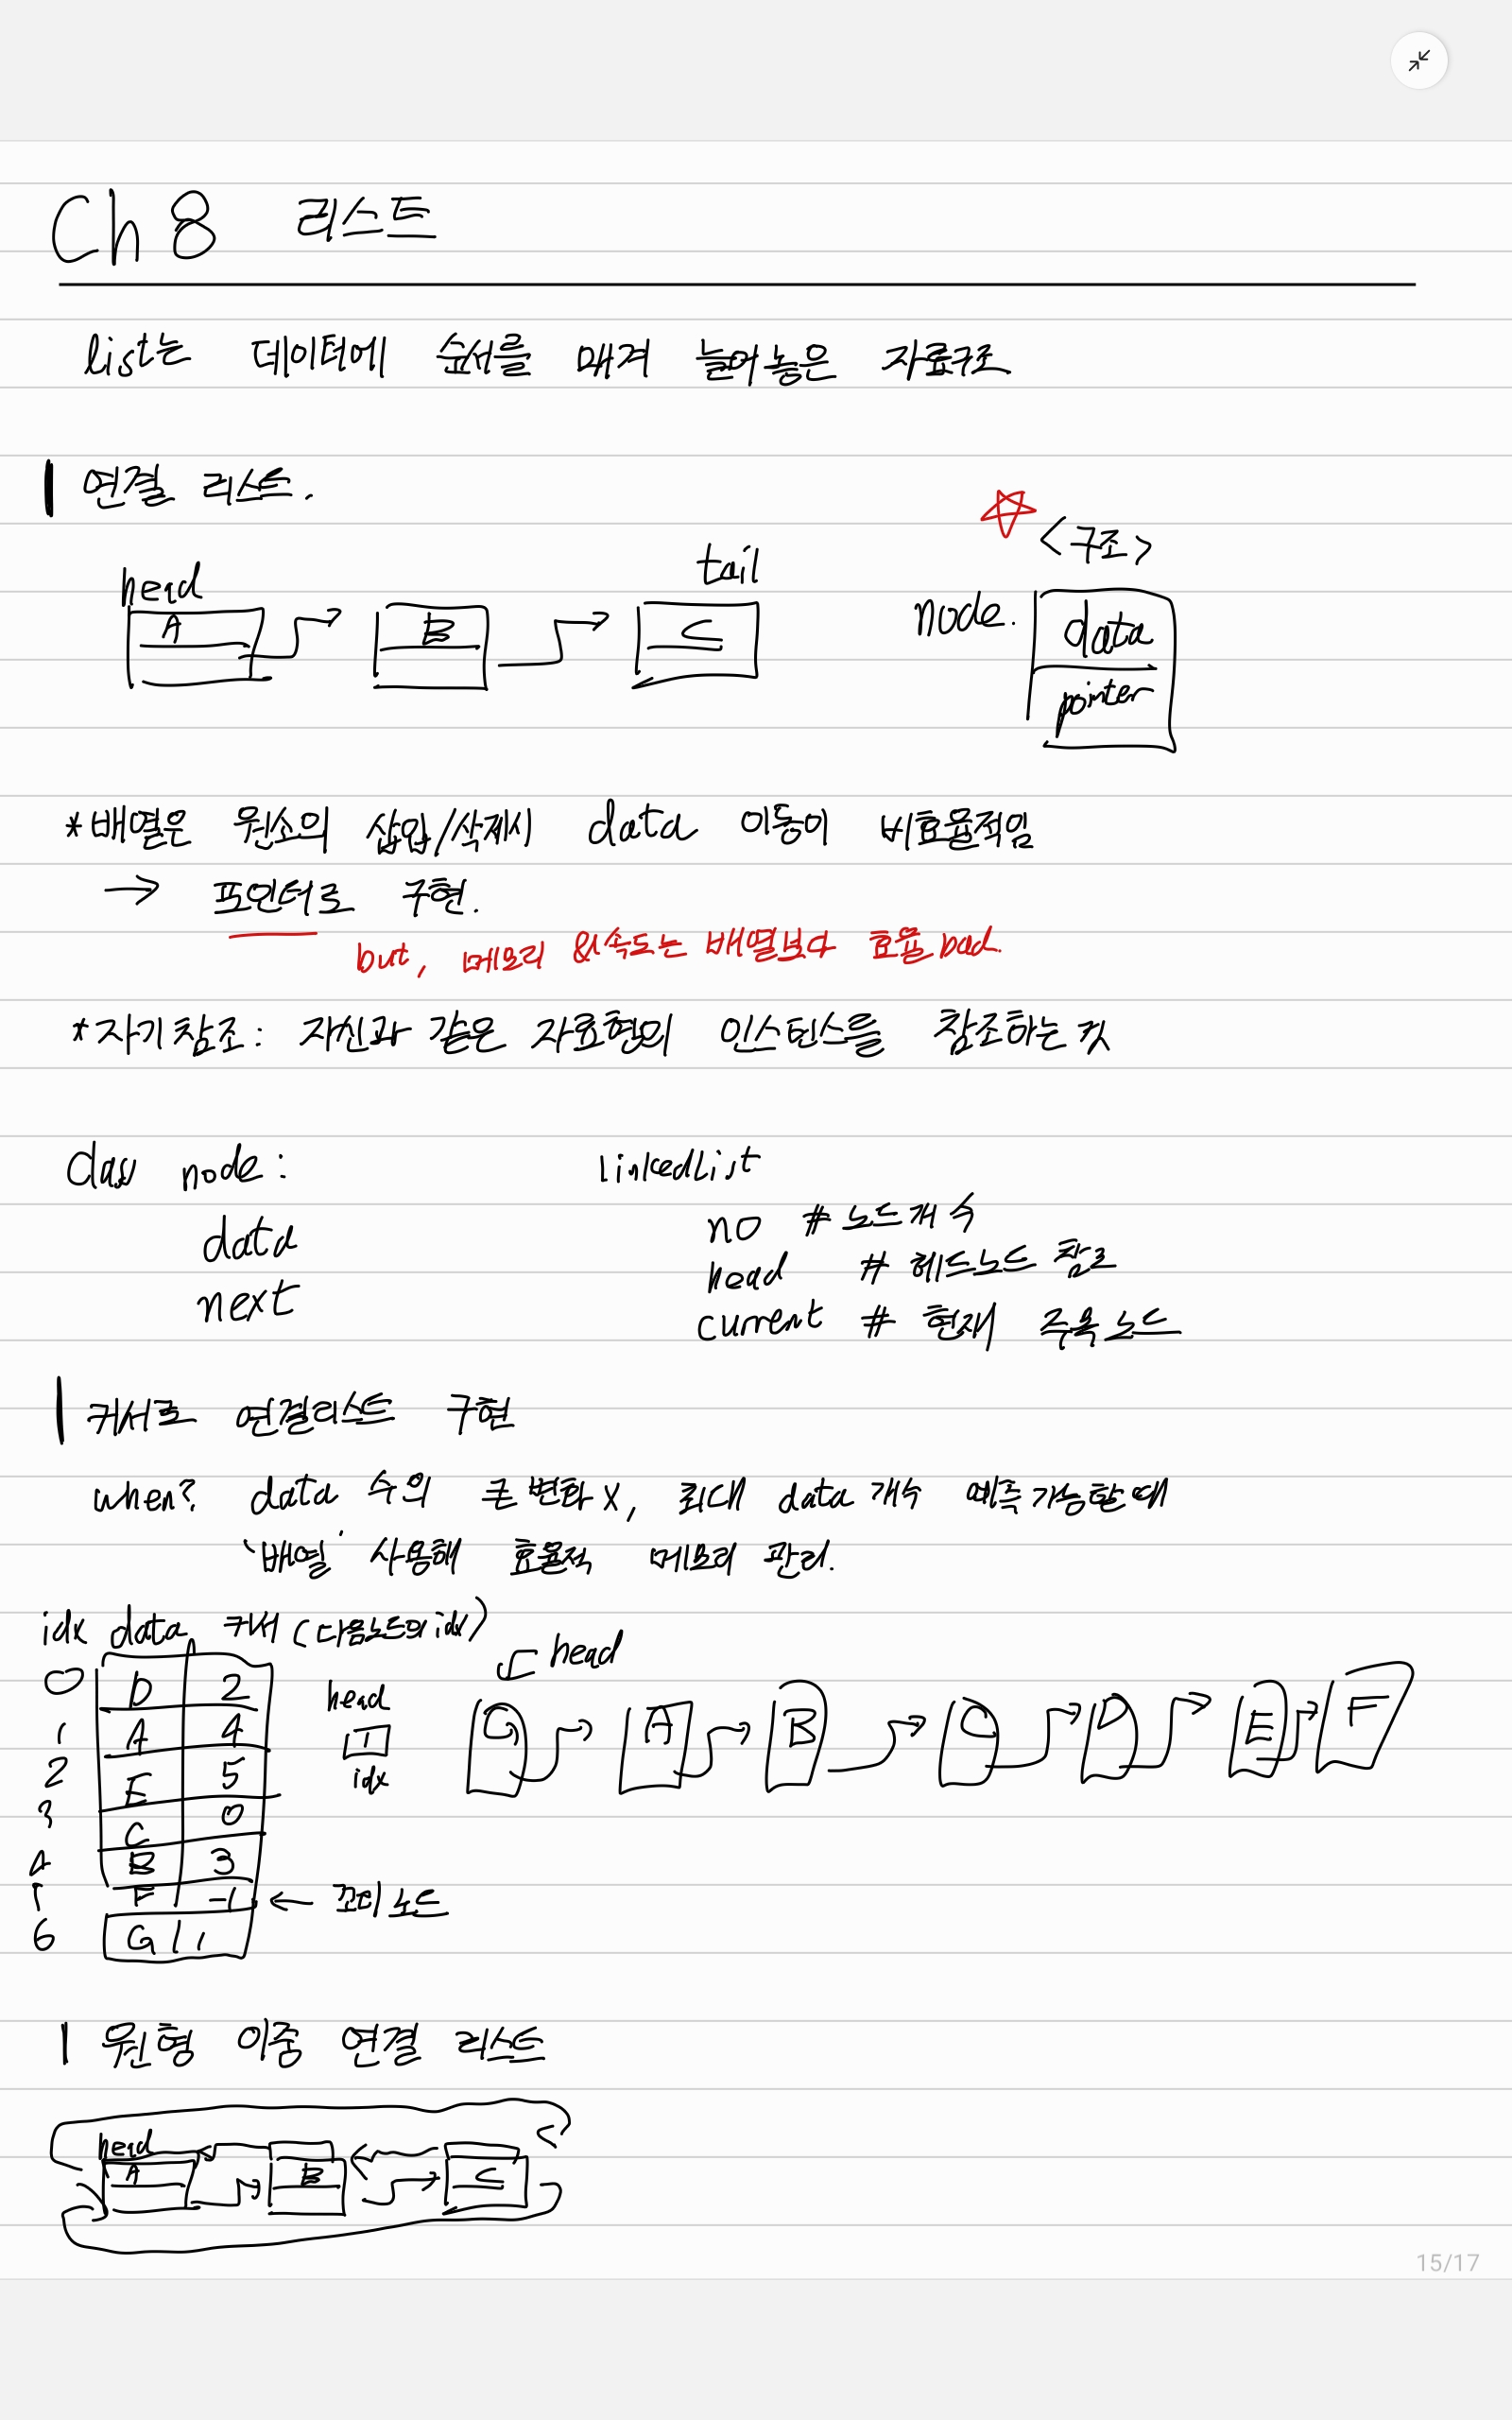 Ch 8 리스트
list는 데이터에 순서를 매겨 늘어놓은 자료구조
연결 리스트.
<구조>
head tail
A B C
node. data
pointer
*배열은 원소의 삽입/삭제시 data 이동이 비효율적임
→ 포인터로 구현.
but, 메모리 &속도는 배열보다 효율 bad.
*자기참조: 자신과 같은 자료형의 인스턴스를 참조하는 것
class node: linkedList
data no # 노드개수
next head # 헤드노드 참조
current # 현재 주목 노드
커서로 연결리스트 구현
when? data 수의 큰 변화 x, 최대 data 개수 예측가능할때
'배열' 사용해 효율적 메모리 관리.
idx data 커서 (다음노드의 idx)
head
0 D 2
1 A 4
2 E 5
3 C 0
4 B 3
F -1 ← 꼬리노드
6 G 1
head
1
idx
G A B C D E F
원형 이중 연결 리스트
head
A B C
15/17